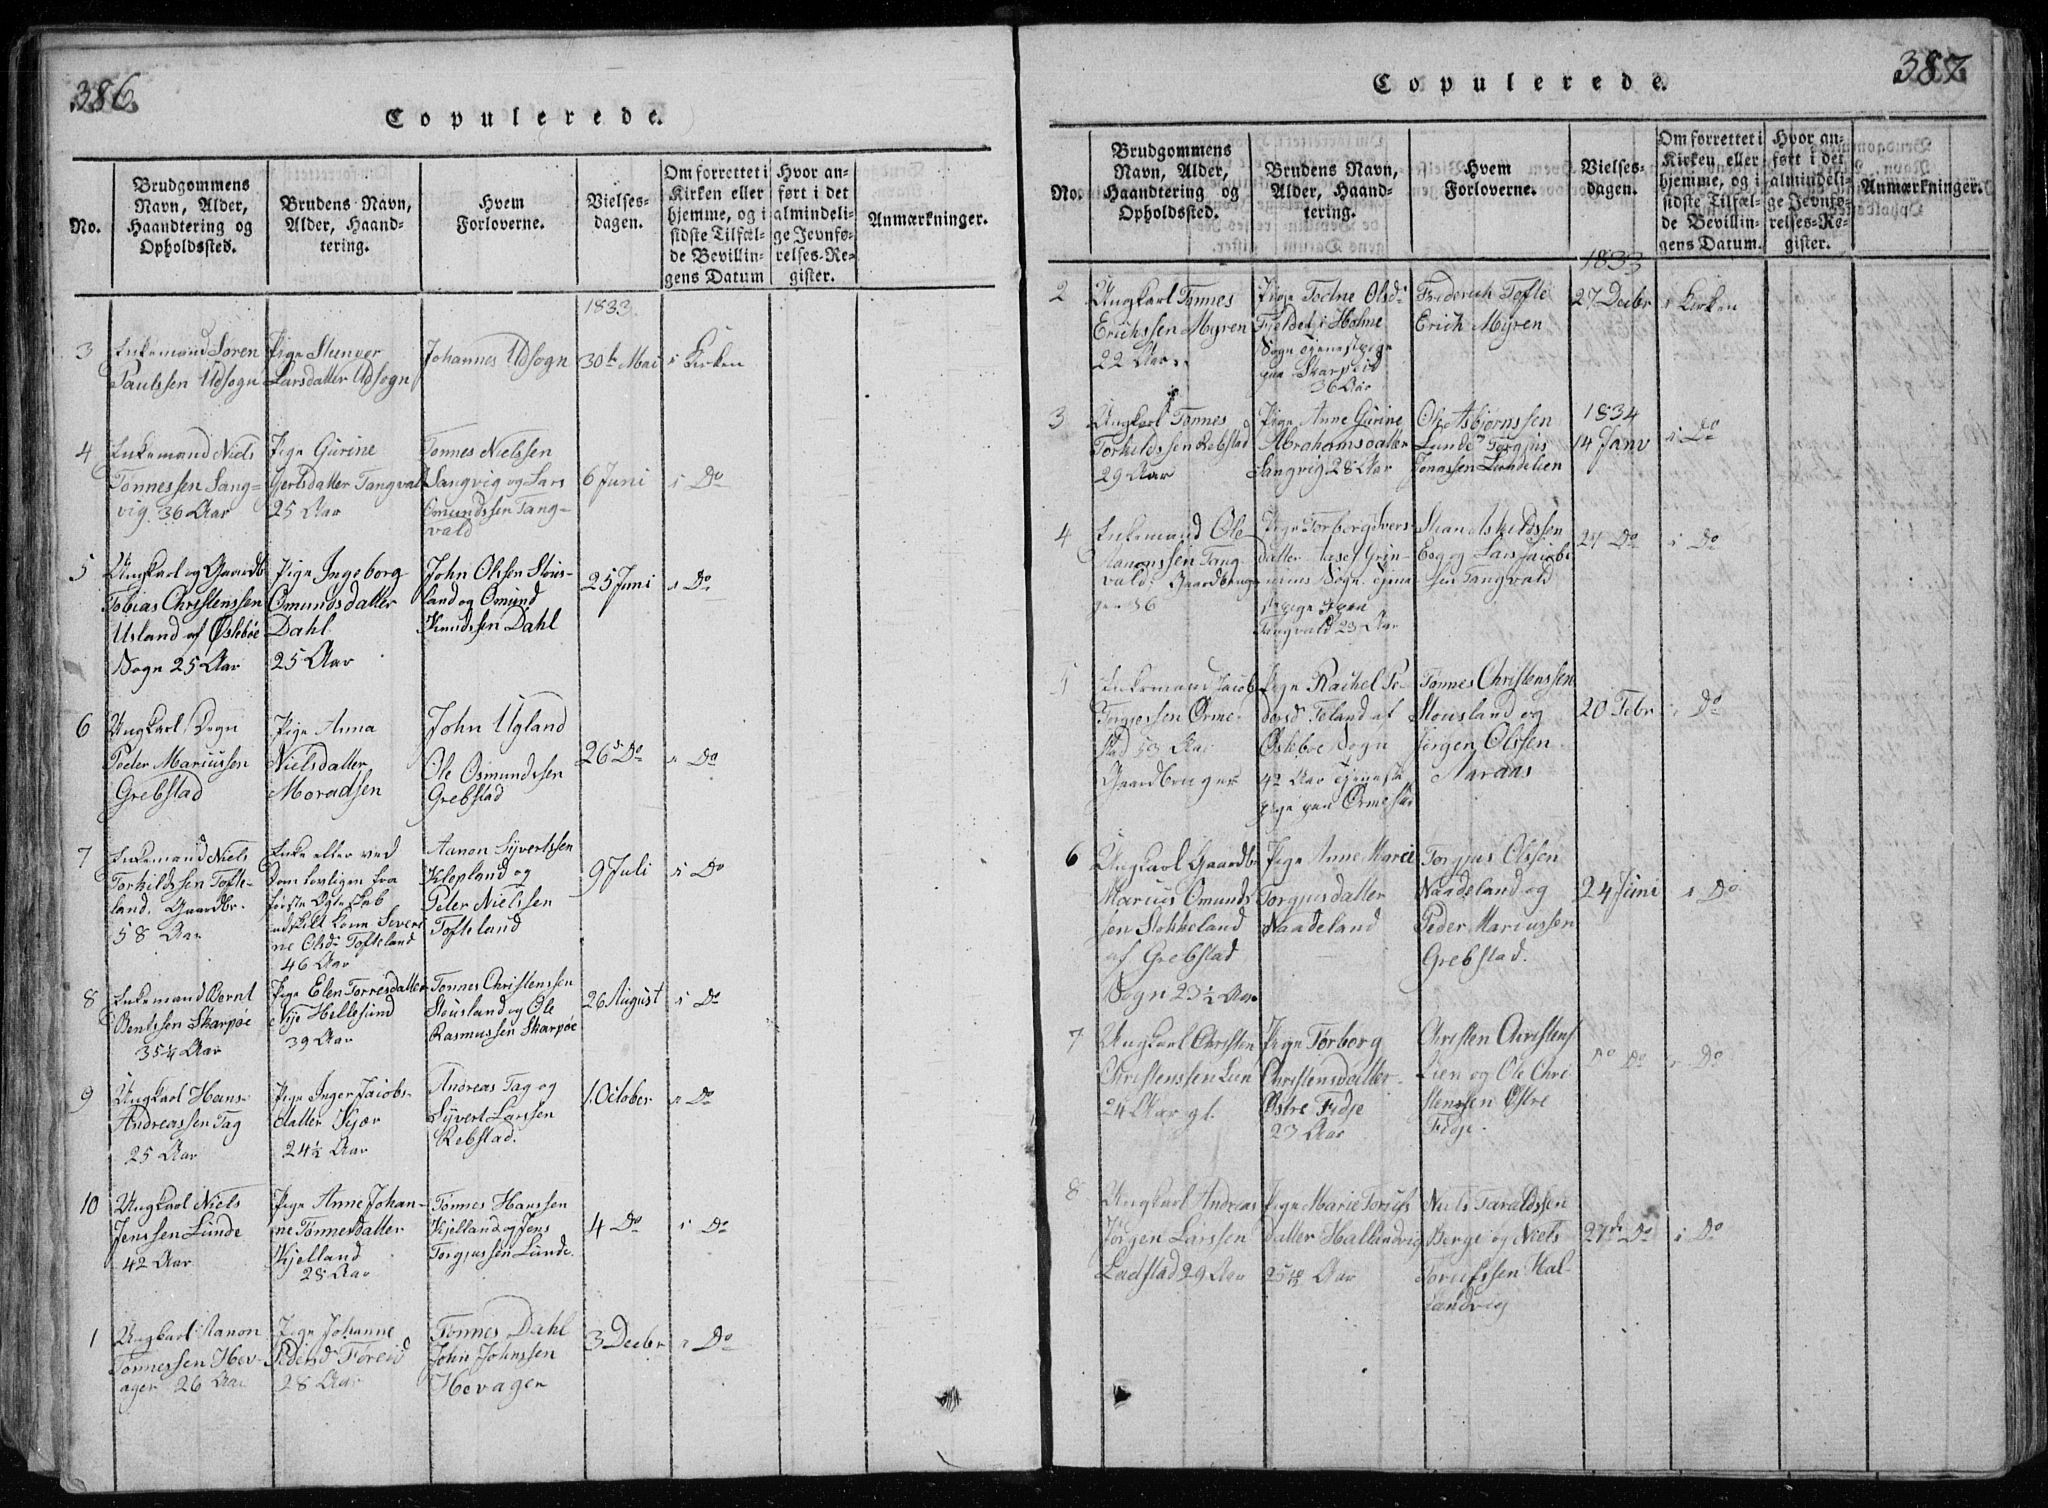 386.
Copulerede.
No.
Brudgommens
Navn, Alder,
Haandtering og
Opholdssted.
Brudens Navn,
Alder, Haand-
tering.
Hvem
Forloverne.
Vielses-
dagen.
Om forrettet i
Kirken eller
hjemme, og i
sidste Tilfæl-
de Bevillin-
gens Datum
Hvor an-
ført i det
almindeli-
ge Jevnfø-
relses-Re-
gister.
Anmærkninger.
1833
3
Enkemand Søren
Paulssen Udsogn
Pige
Larsdatter Udsogn
Johannes Udsogn
30te Mai
i Kirken
4
Enkemand Niels
Tønnessen Sang-
vig. 36 Aar
Pige Gurine
Gjertsdatter Tangvald
25 Aar
Tønnes Nielssen
Sangvig og Lars
Omundssen Tang-
vald
6 Juni
i Do
5
Ungkarl og Gaardb.
Tobias Christenssen
Usland af Øslebøe
Sogn 25 Aar
Pige Ingeborg
Omundsdatter
Dahl
25 Aar
John Olssen Stous-
land og Omund
Knudssen Dahl
25 Juni
i Do
6
Ungkarl, Degn
Peder Mariussen
Grebstad
Pige Anna
Nielsdatter
Moradsen
John Ugland
Ole Osmundssen
Grebstad
26 Do
i Do
7
Enkemand Niels
Torkildssen Tofte-
land. Gaardbr.
58 Aar
Enke eller ved
Dom lovligen fra
første Ægteskab
adskilt Kone Severi
ne Olsd. Tofteland
46 Aar
Aanon Syvertssen
Klepland og
Peter Nielssen
Tofteland
9 Juli
i Do
8
Enkemand Bernt
Bentssen Skarpøe
35¼ Aar
Pige Elen Torresdatter
Nye Hellesund
39 Aar
Tønnes Christenssen
Stousland og Ole
Rasmussen Skarpøe
26 August
i Do
9
Ungkarl Hans
Andreassen Tag
25 Aar
Pige Inger Jacobs-
datter Kjær
24½ Aar
Andreas Tag og
Syvert Larssen
Rebstad.
1. October
i Do
10
Ungkarl Niels
Jenssen Lunde
42 Aar
Pige Anne Johan-
ne Tønnesdatter
Kjelland
28 Aar
Tønnes Hanssen
Kjelland og Jens
Torgjussen Lunde.
4 Do
i Do
1
Ungkarl Aanon
Tønnessen Hev-
ager 26 Aar
Pige Johanne
Pedersd Foreid
28 Aar
Tønnes Dahl
John Johnssen
Hevagen
3 Decbr
i Do
387.
Copulerede.
No.
Brudgommens
Navn, Alder,
Haandtering og
Opholdssted.
Brudens Navn,
Alder, Haand-
tering.
Hvem
Forloverne.
Vielses-
dagen.
Om forrettet i
Kirken eller
hjemme, og i
sidste Tilfæl-
de Bevillin-
gens Datum.
Hvor an-
ført i det
almindeli-
ge Jevnfø-
relses-Re-
gister.
Anmærkninger.
1833
2
Ungkarl Tønnes
Erichssen Myren
22 Aar.
Pige Todne Olsd.
Fjeldet i Holme
Sogn Tjenestpige
paa Skarpeid
36 Aar
Frederich Tofte
Erich Myren
27 Decbr
i Kirken
3
Ungkarl Tønnes
Torkildssen Rebstad
29 Aar
Pige Anne Gurine
Abrahamsdatter
Sangvig 28 Aar
Ole Asbjørnssen
Lunde Torgjus
Jonassen Lundelien
1834
14 Janv
i Do
4
Enkemand Ole
Aanonssen Tang-
vald. Gaardbru-
ger 36
Pige Torborg Sivers-
datter
Sogn. Tjene
stepige paa
Tangvald 23 Aar
Eeg og Lars Jacobs-
sen Tangvald
24 Do
i Do
5
Enkemand Jacob
Torgjussen Orme-
stad 53 Aar
Gaardbruger
Pige Rachel Pe-
dersd Foland af
Øslebøe Sogn
42 Aar Tjeneste
pige paa Ormestad
Tønnes Christenssen
Stousland og
Jørgen Olssen
Aaraas
20 Febr
i Do
6
Ungkarl Gaardb.
Marius Omunds
sen Stokkeland
af Grebstad
Sogn 23½ Aar
Pige Anne Marie
Torgjusdatter
Naadeland
Torgjus Olssen
Naadeland og
Peder Mariussen
Grebstad.
24 Juni
i Do
7
Ungkarl Christen
Christenssen Lien
24 Aar gl.
Pige Torborg
Christensdatter
Østre Fidje
23 Aar
Christen Christens
Lien og Ole Chri
stenssen Østre
Fidje.
Do Do
i Do
8
Ungkarl Andreas
Jørgen Larssen
Ladstad 29 Aar
Pige Marie Torjus
datter Hallandvig
Aar
Niels Taraldssen
Berge og Niels
Torjussen Hal-
landvig
27de Do
i Do